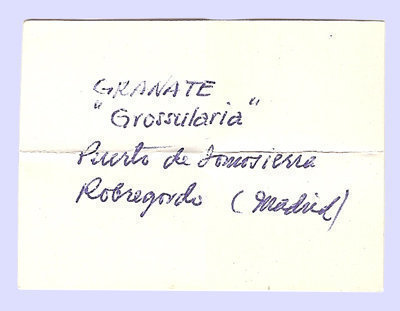 GRANATE
"Grossularia"
Puerto de Somosierra
Robregordo (Madrid)